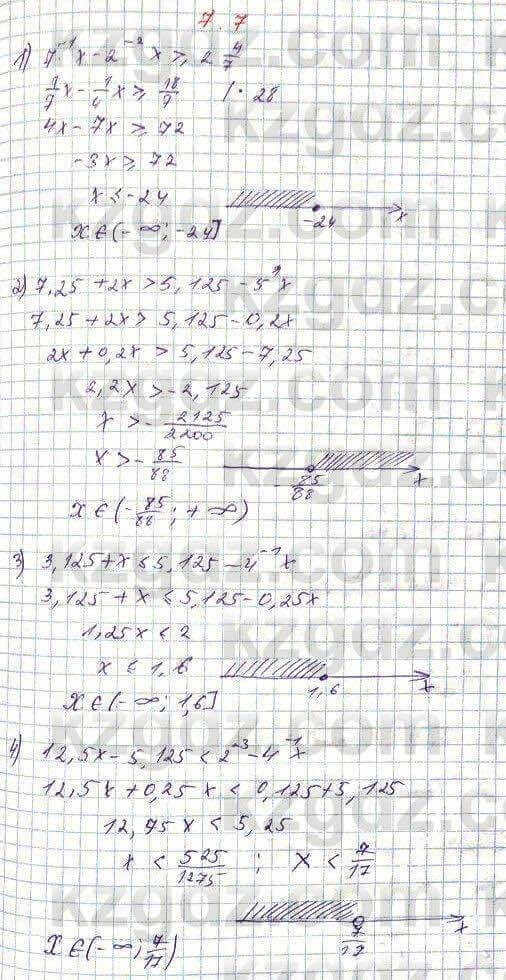 7.7
1) 7⁻¹x - 2⁻²x ≥ 2 4/7
1/7x - 1/4x ≥ 18/7 | · 28
4x - 7x ≥ 72
-3x ≥ 72
x ≤ -24
-24 x
x ∈ (-∞; -24]
2) 7,25 + 2x > 5,125 - 5⁻¹x
7,25 + 2x > 5,125 - 0,2x
2x + 0,2x > 5,125 - 7,25
2,2x > -2,125
x > - 2125/2200
x > - 85/88
- 85/88 x
x ∈ (- 85/88; +∞)
3) 3,125 + x ≤ 5,125 - 4⁻¹x
3,125 + x ≤ 5,125 - 0,25x
1,25x ≤ 2
x ≤ 1,6
1,6 x
x ∈ (-∞; 1,6]
4) 12,5x - 5,125 < 2⁻³ - 4⁻¹x
12,5x + 0,25x < 0,125 + 5,125
12,75x < 5,25
x < 525/1275 ; x < 7/17
7/17 x
x ∈ (-∞; 7/17)
kzgdz.com